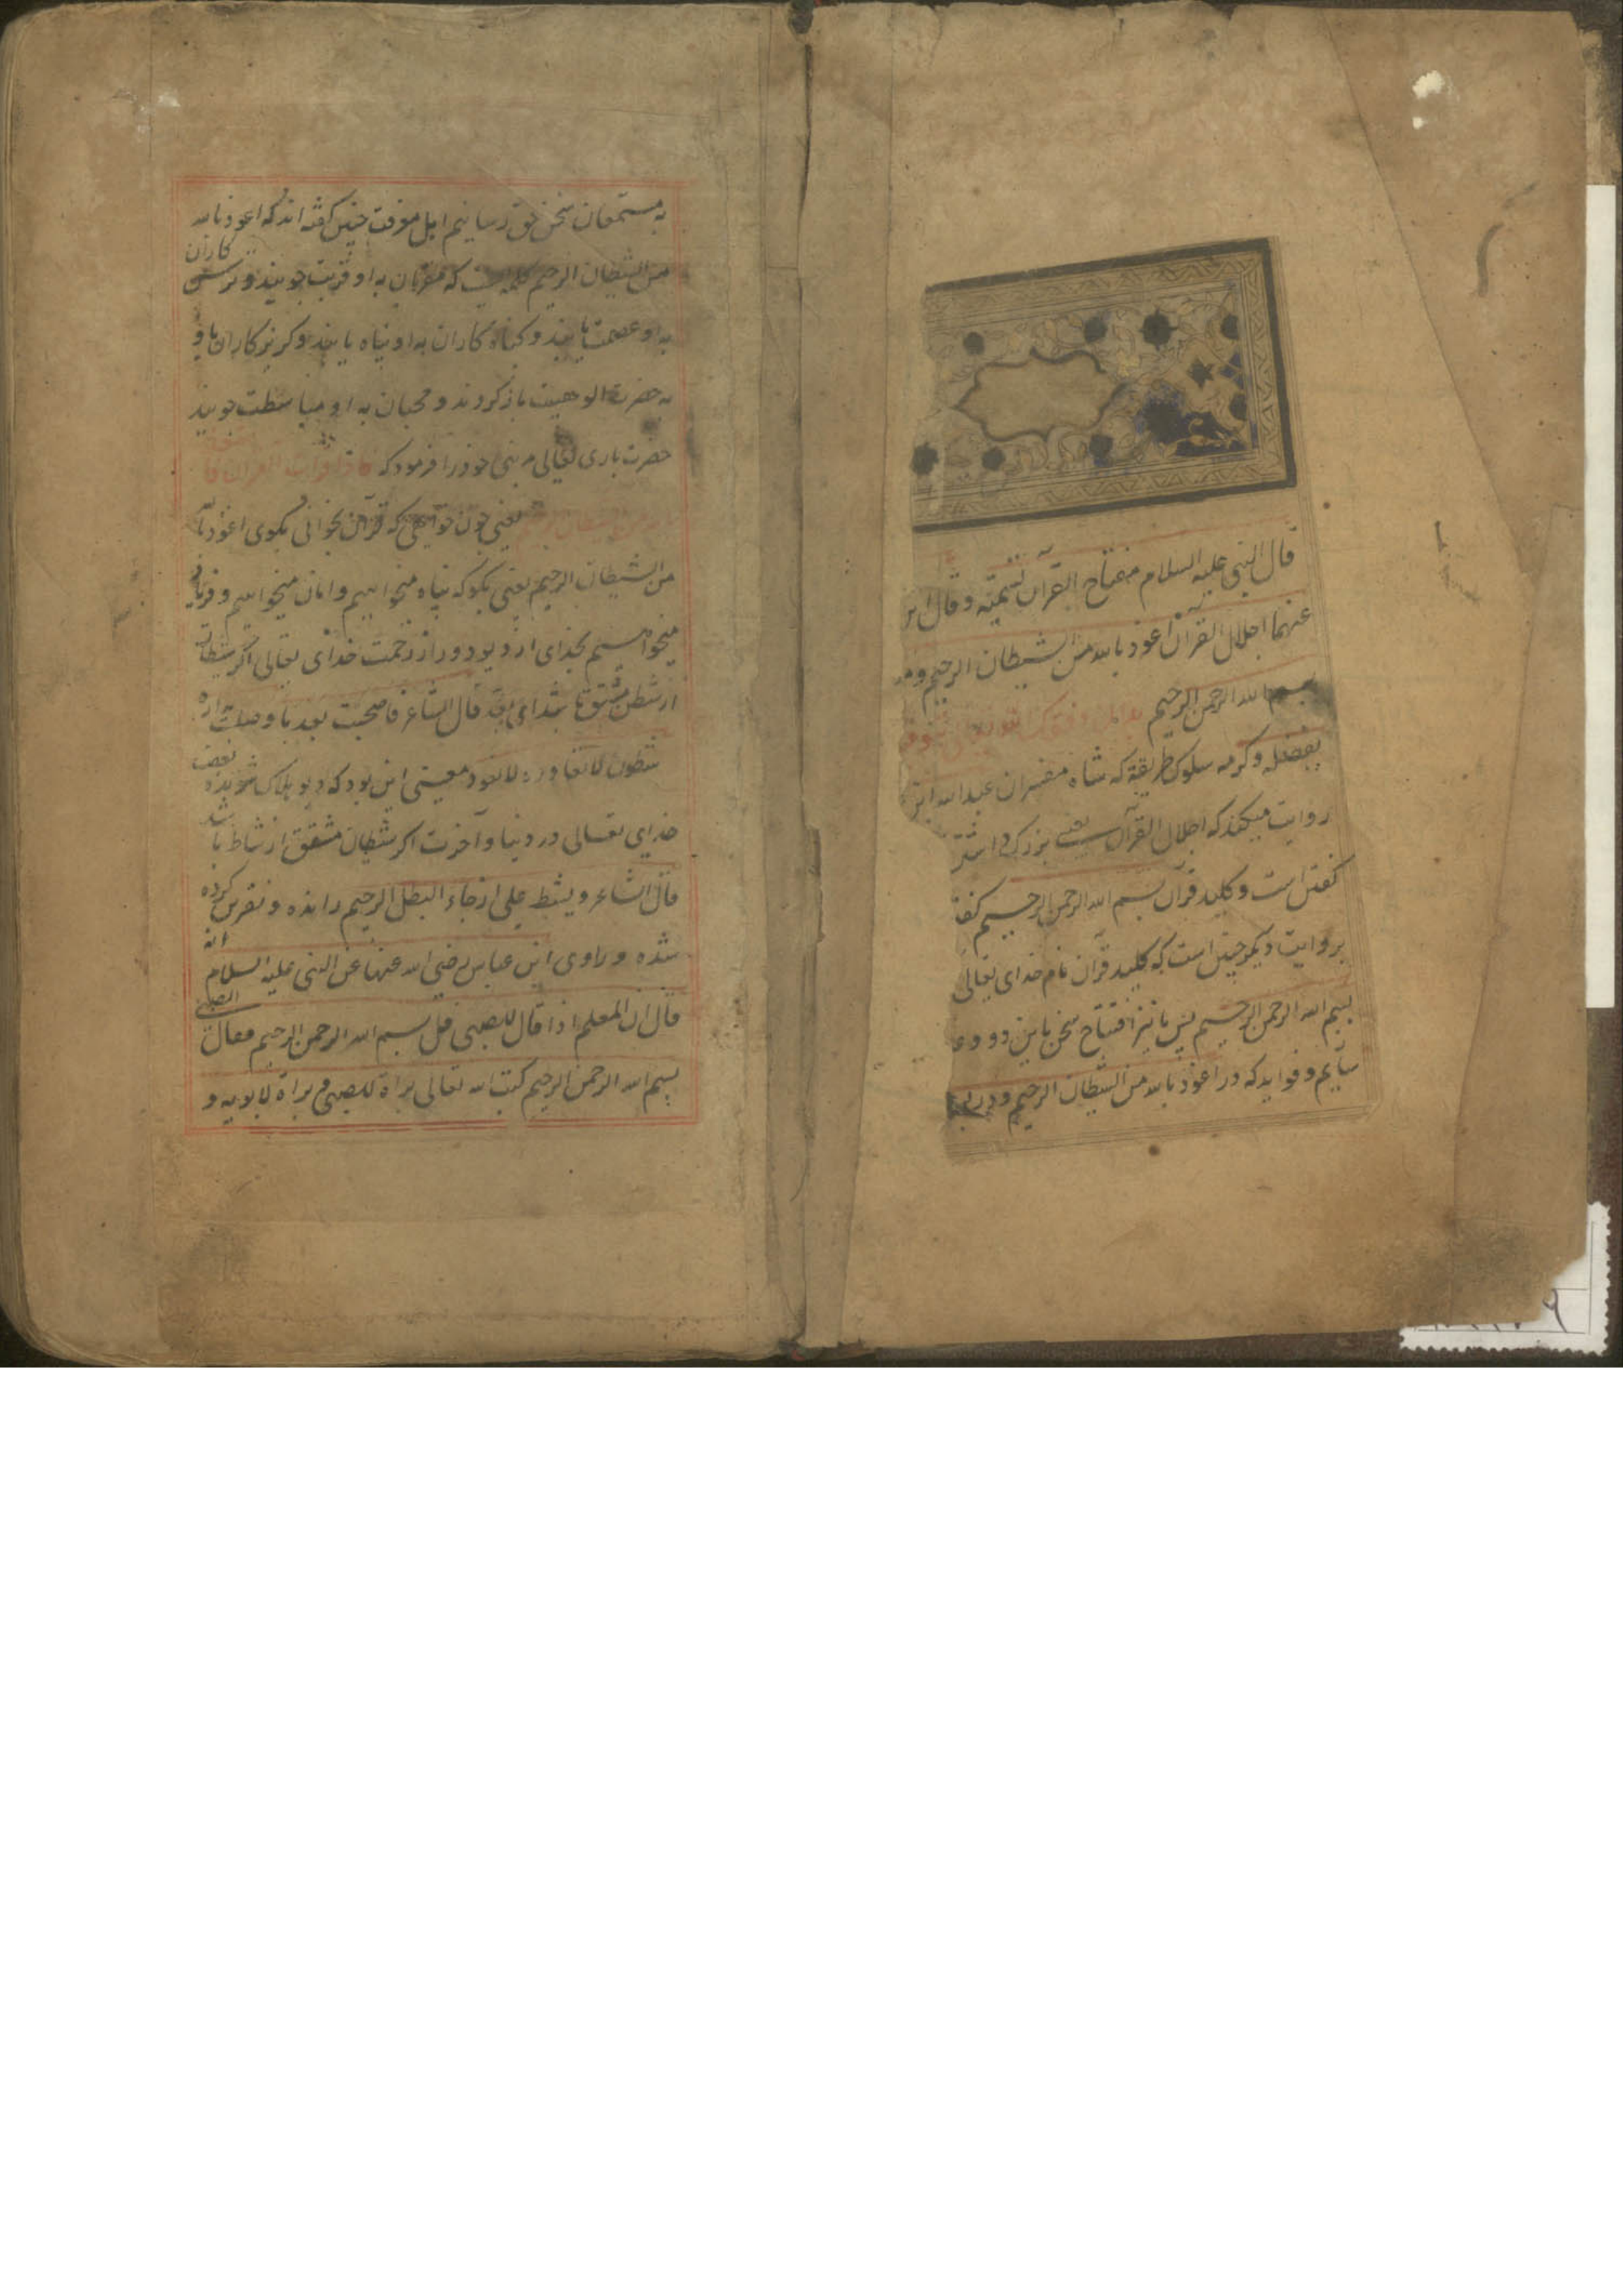 قال النبی علیه السلام مفتاح القرآن تسمیته وقال ابن
عنهما اجلال القرآن اعوذ بالله من الشیطان الرحیم و
بسم الله الرحمن الرحیم
بفضله و کرمه سلوک طریقة که شاه مفسران عبدالله ابن
روایت میکند که اجلال القرآن یعنی بزرک داشتن
کفتن است و کلید قرآن بسم الله الرحمن الرحیم
بروایت دیکر چنین است که کلید قرآن نام خدای تعالی
بسم الله الرحمن الرحیم پس ما نیز افتتاح سخن باین دو
و فواید که در اعوذ بالله من الشیطان الرحیم و در
به مستمعان سخن حق رسانیم اهل معرفت چنین کفته اند که اعوذ بالله
من الشیطان الرحیم کلمه ایست که مقربان به او قربت جویند و ترس کاران
به او عصمت یابند و کناه کاران به او پناه یابند و کریز کاران باو
به حضرت الوهیت باز کردند و محبان به او مباسطت جویند
حضرت باری تعالی مر نبی خود را فرمود که فاذا قرات القران فا
یعنی چون خواهی که قرآن بخوانی بکوی اعوذ بالله
من الشیطان الرحیم یعنی بکو که پناه میخواهیم و امان میخواهیم و فریاد
میخواهیم بخدای از دیو دور از رحمت خدای تعالی اکر شیطان
از شطن مشتق باشد ای بعد قال الشاعر فاصحبت بعد ما وصلت
شطون لا تعاد ولا تعود معنی این بود که دیو هلاک شونده
خدای تعالی در دنیا و آخرت اکر شیطان مشتق از شاط باشد
قال الشاعر و یشط علی ارجاء البطل الرحیم رانده و نفرین کرده
شده و راوی ابن عباس رضی الله عنهما عن النبی علیه السلام انه
قال ان المعلم اذا قال للصبی قل بسم الله الرحمن الرحیم فقال الصبی
بسم الله الرحمن الرحیم کتب الله تعالی براة للصبی و براة لابویه و